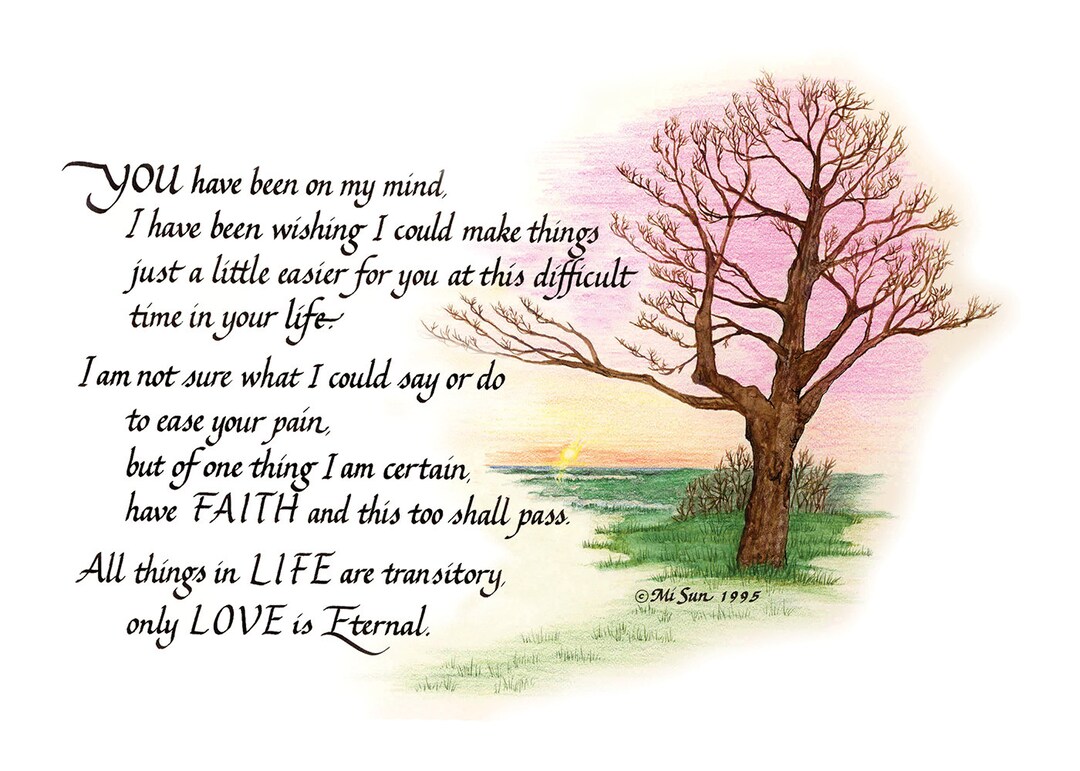 YOU have been on my mind,
I have been wishing I could make things
just a little easier for you at this difficult
time in your life.
I am not sure what I could say or do
to ease your pain,
but of one thing I am certain,
have FAITH and this too shall pass.
All things in LIFE are transitory,
only LOVE is Eternal.
© Mi Sun 1995